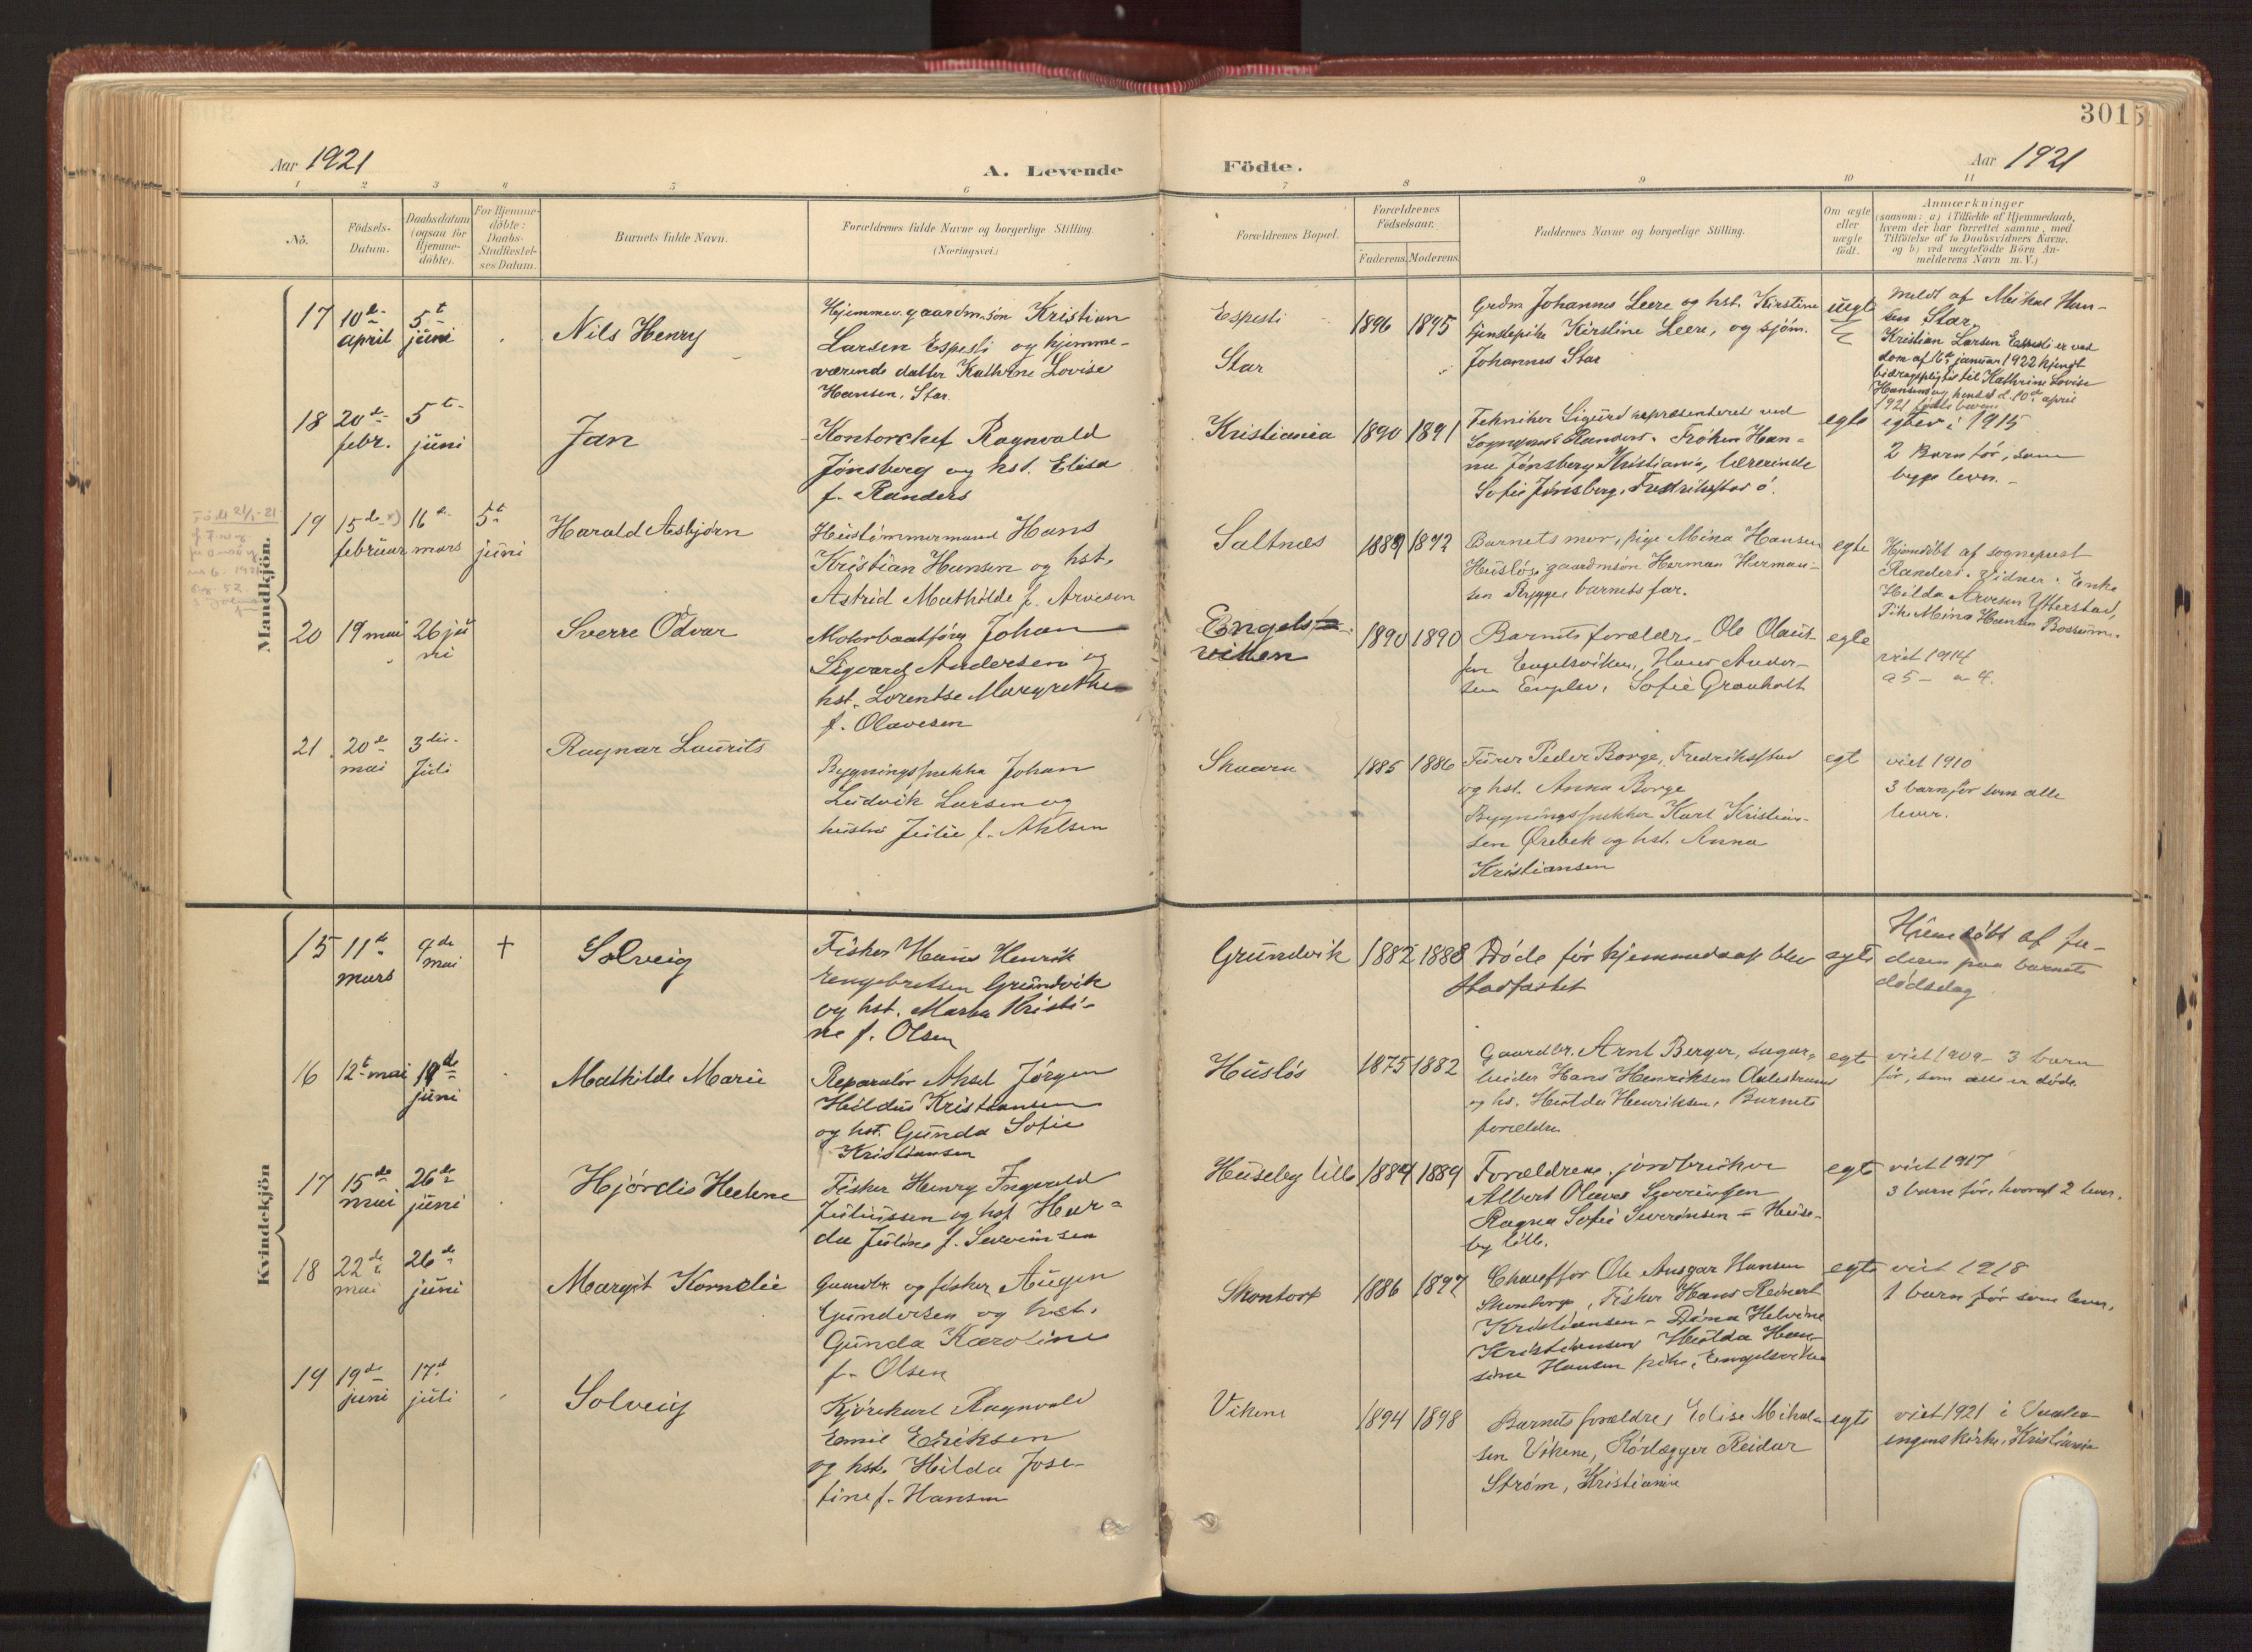 301
Aar 1921
A. Levende
Födte.
Aar 1921
1 2 3 4 5 6 7 8 9 10 11
No.
Födsels-
Datum.
Daabsdatum
(ogsaa for
Hjemme-
döbte).
For Hjemme-
döbte:
Daabs-
Stadfæstel-
ses Datum.
Barnets fulde Navn.
Forældrenes fulde Navne og borgerlige Stilling.
(Næringsvei.)
Forældrenes Bopæl.
Forældrenes
Födselsaar.
Faderens. Moderens.
Faddernes Navne og borgerlige Stilling.
Om ægte
eller
uægte
födt.
Anmærkninger
(saasom: a) i Tilfælde af Hjemmedaab,
hvem der har forrettet samme, med
Tilföielse af to Daabsvidners Navne,
og b) ved uægtefödte Börn An-
melderens Navn m. V.)
Mandkjön.
17
10de
april
5t
juni
Nils Henry
Hjemmev. gaardm.søn Kristian
Larsen Espesli og hjemme-
værende datter Kathrine Lovise
Hansen, Star.
Espesli
Star
1896 1895
Grdm Johannes Leere og hst. Kirstine
tjenstepike Kirstine Leere, og sjöm.
Johannes Star
uegte
Meldt af Mikal Han-
sen Star.
Kristian Larsen Espesli er ved
dom af 16de januar 1922 kjendt
bidragspligtig til Kathrine Lovise
Hansens d. 10de april
1921 födte barn
18
20de
febr.
5t
juni
Jan
Kontorchef Ragnvald
Jönsberg og hst. Elisa
f. Randers
Kristiania
1890 1891
Tekniker Sigurd repræsenteret ved
Sogneprest Randers. Fröken Han-
na Jönsberg Kristiania, lærerinde
Sofie Jönsberg, Fredriksstad ö.
egte
egtev. i 1915
2 Barn för, som
begge lever.
19
15de
februar
16de
mars
5t
juni
Harald Asbjörn
Hustömmermand Hans
Kristian Hansen og hst.
Astrid Mathilde f. Arvesen
Saltnes
1889 1892
Barnets mor, pige Mina Hansen
Huslös gaardmsön Herman Herman-
sen Rygge, barnets far.
egte
Hjemdöbt af sogneprest
Randers. Vidner: Enke
Hilda Arvesen Ytterstad,
Pike Mina Hansen
20
19 mai
26 ju
ni
Sverre Odvar
Motorbaatförer Johan
Sigvard Andersen og
hst. Lorentse Margrethe
f. Olavesen
Engels-
viken
1890 1890
Barnets forældre. Ole Olaus-
sen Engelsviken, Hans Ander-
sen Engelsv, Sofie Granholt
egte
viet 1914
21
20de
mai
3die
Juli
Ragnar Laurits
Bygningssnekker Johan
Ludvik Larsen og
hustru Julie f. Ahlsen
Skaara
1885 1886
Peder Borge, Fredriksstad
og hst. Anna Borge
Bygningssnekker Karl Kristian-
sen Örebek og hst. Anna
Kristiansen
egt
viet 1910
3 barn för som alle
lever.
Kvindekjön
15
11te
mars
9de
mai
†
Solveig
Fisker Hans Henrik
Engebretsen Grundvik
og hst. Marta Kristi-
ne f. Olsen
Grundvik
1882 1888
Döde för hjemmedaab blev
stadfæstet
egte
Hjemdöbt af fa-
deren paa barnets
dödsdag
16
12t mai
19de
juni
Mathilde Marie
Reparatör Aksel Jörgen
Hildus Kristiansen
og hst. Gunda Sofie
Kristiansen
Huslös
1875 1882
Gaardbr. Arnt Berger, sagar-
beider Hans Henriksen Aalestrand
og hs. Hulda Henriksen, Barnets
forældre
egt
viet 1909 - 3 barn
för, som alle er döde.
17
15de
mai
26de
juni
Hjördis Helene
Fisker Henry Ingvald
Juliussen og hst Har-
da Juline f. Severinsen
Huseby lille
1889 1889
Forældrene, jordbruker
Albert Olaves Severinsen
Ragna Sofie Severinsen - Huse-
by lille.
egte
viet 1917
3 barn för, hvoraf 2 lever.
18
22de
mai
26de
juni
Margit Kornelie
Gaardbr. og fisker Augen
Gundersen og hst.
Gunda Karoline
f. Olsen
Skontorp
1886 1897
Chaufför Ole Ansgar Hansen
Skontorp, Fisker Hans Reinert
Kristiansen - Dina Helvine
Kristiansen Hulda Han-
sine Hansen pike, Engelsviken
egte
viet 1918
1 barn för som lever.
19
19de
juni
17de
juli
Solveig
Kjörekarl Ragnvald
Emil Eriksen
og hst. Hilda Jose-
fine f. Hansen
Vikene
1894 1898
Barnets forældre, Edise Mikal-
sen Vikene, Rörlægger Reidar
Ström, Kristiania
egte
viet 1921 i
kirke, Kristiania